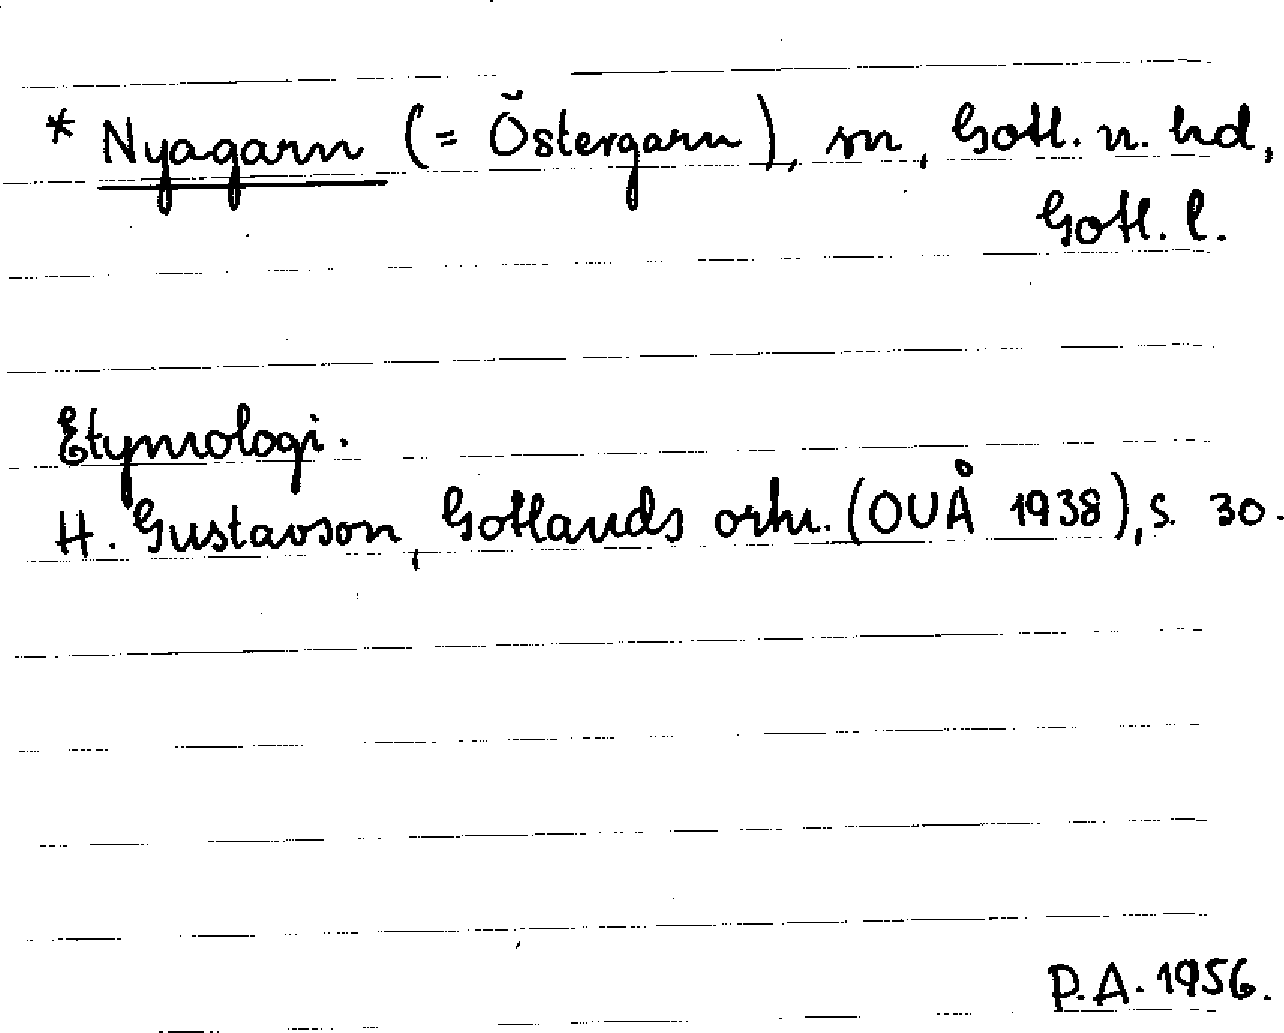 * Nyagarn (= Östergarn), sn, Gotl. n. hd,
Gotl. l.
Etymologi.
H. Gustavson, Gotlands ortn. (OUÅ 1938), s. 30.
P.A. 1956.